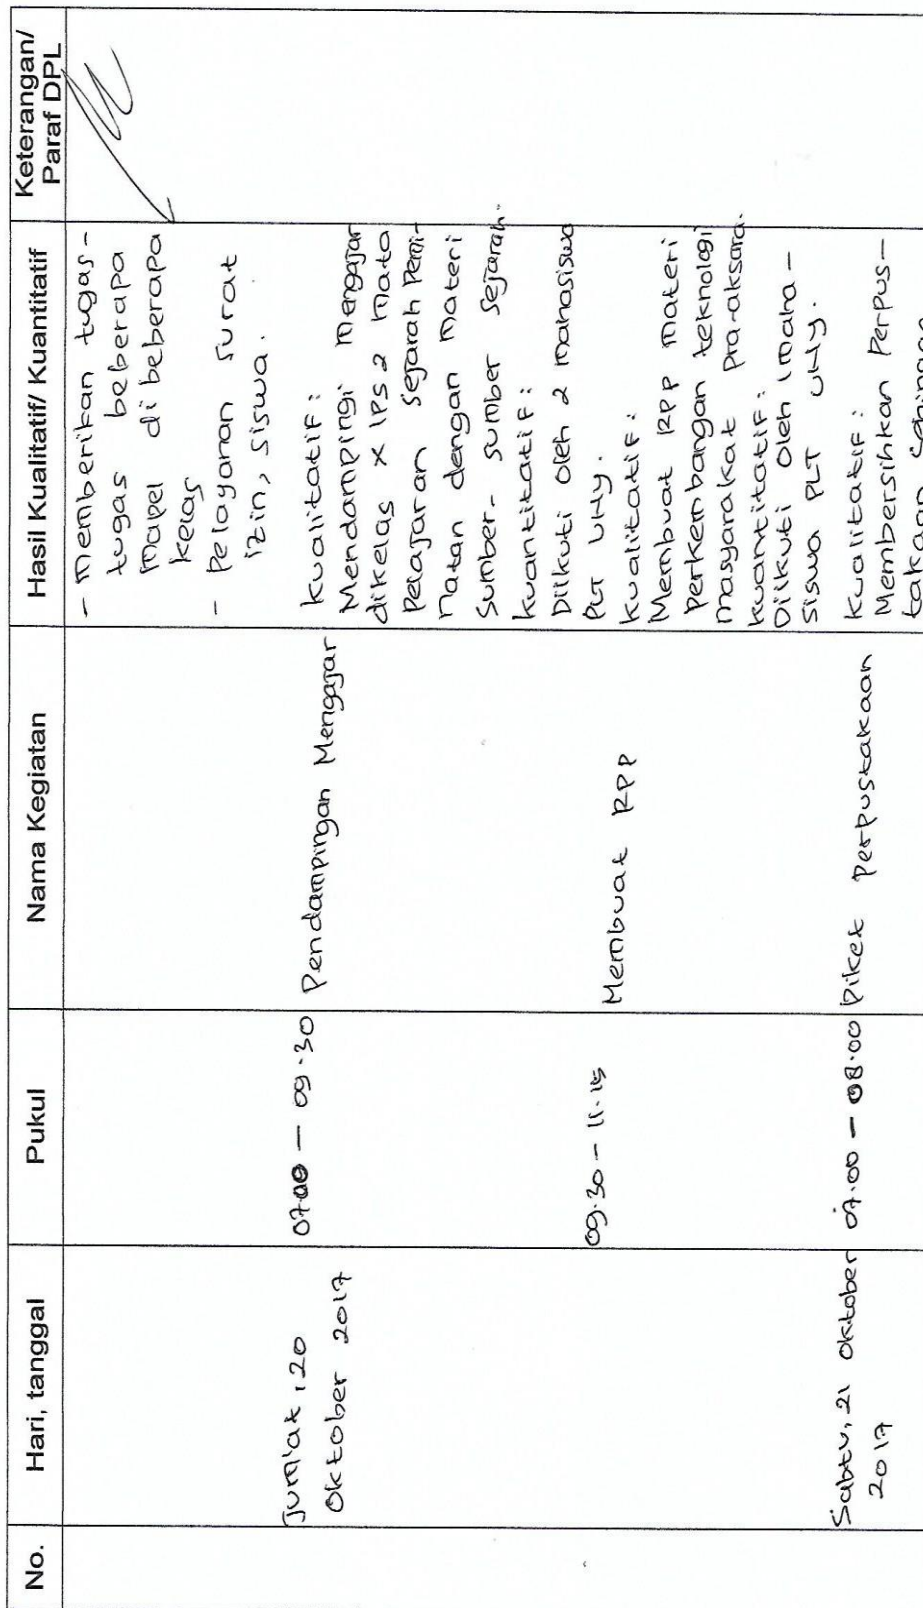 No.
Hari, tanggal
Pukul
Nama Kegiatan
Hasil Kualitatif/ Kuantitatif
Keterangan/
Paraf DPL
- Memberikan tugas-
tugas beberapa
mapel di beberapa
kelas
- Pelayanan surat
izin, siswa.
Jum'at, 20
Oktober 2017
07.00 - 09.30
Pendampingan Mengajar
Kualitatif:
Mendampingi Mengajar
dikelas X IPS 2 mata
Pelajaran Sejarah Pemi-
natan dengan Materi
Sumber-sumber sejarah.
Kuantitatif:
Diikuti oleh 2 mahasiswa
PLT UNY.
09.30 - 11.15
Membuat RPP
Kualitatif:
Membuat RPP Materi
Perkembangan teknologi
masyarakat pra-aksara.
Kuantitatif:
Diikuti oleh 1 maha-
siswa PLT UNY.
Sabtu, 21 Oktober
2017
07.00 - 08.00
Piket Perpustakaan
Kualitatif:
Membersihkan Perpus-
takaan sehingga